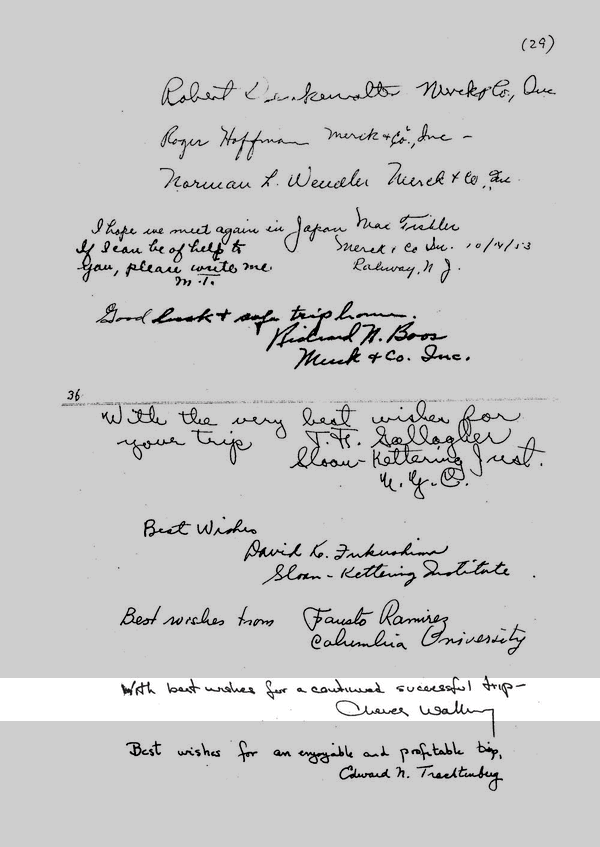 (29)
Robert Denkewalter Merck & Co., Inc
Roger Hoffman Merck & Co., Inc –
Norman L. Wendler Merck & Co., Inc.
I hope we meet again in Japan Max Tishler
If I can be of help to Merck & Co Inc. 10/14/53
you, please write me Rahway, N J.
M.T.
Good luck & safe trip home.
Richard H. Boos
Merck & Co. Inc.
36
With the very best wishes for
your trip T. F. Gallagher
Sloan-Kettering Inst.
N.Y.C.
Best Wishes
David K. Fukushima
Sloan-Kettering Institute.
Best wishes from Fausto Ramirez
Columbia University
With best wishes for a continued successful trip–
Cheves Walling
Best wishes for an enjoyable and profitable trip,
Edward N. Trachtenberg